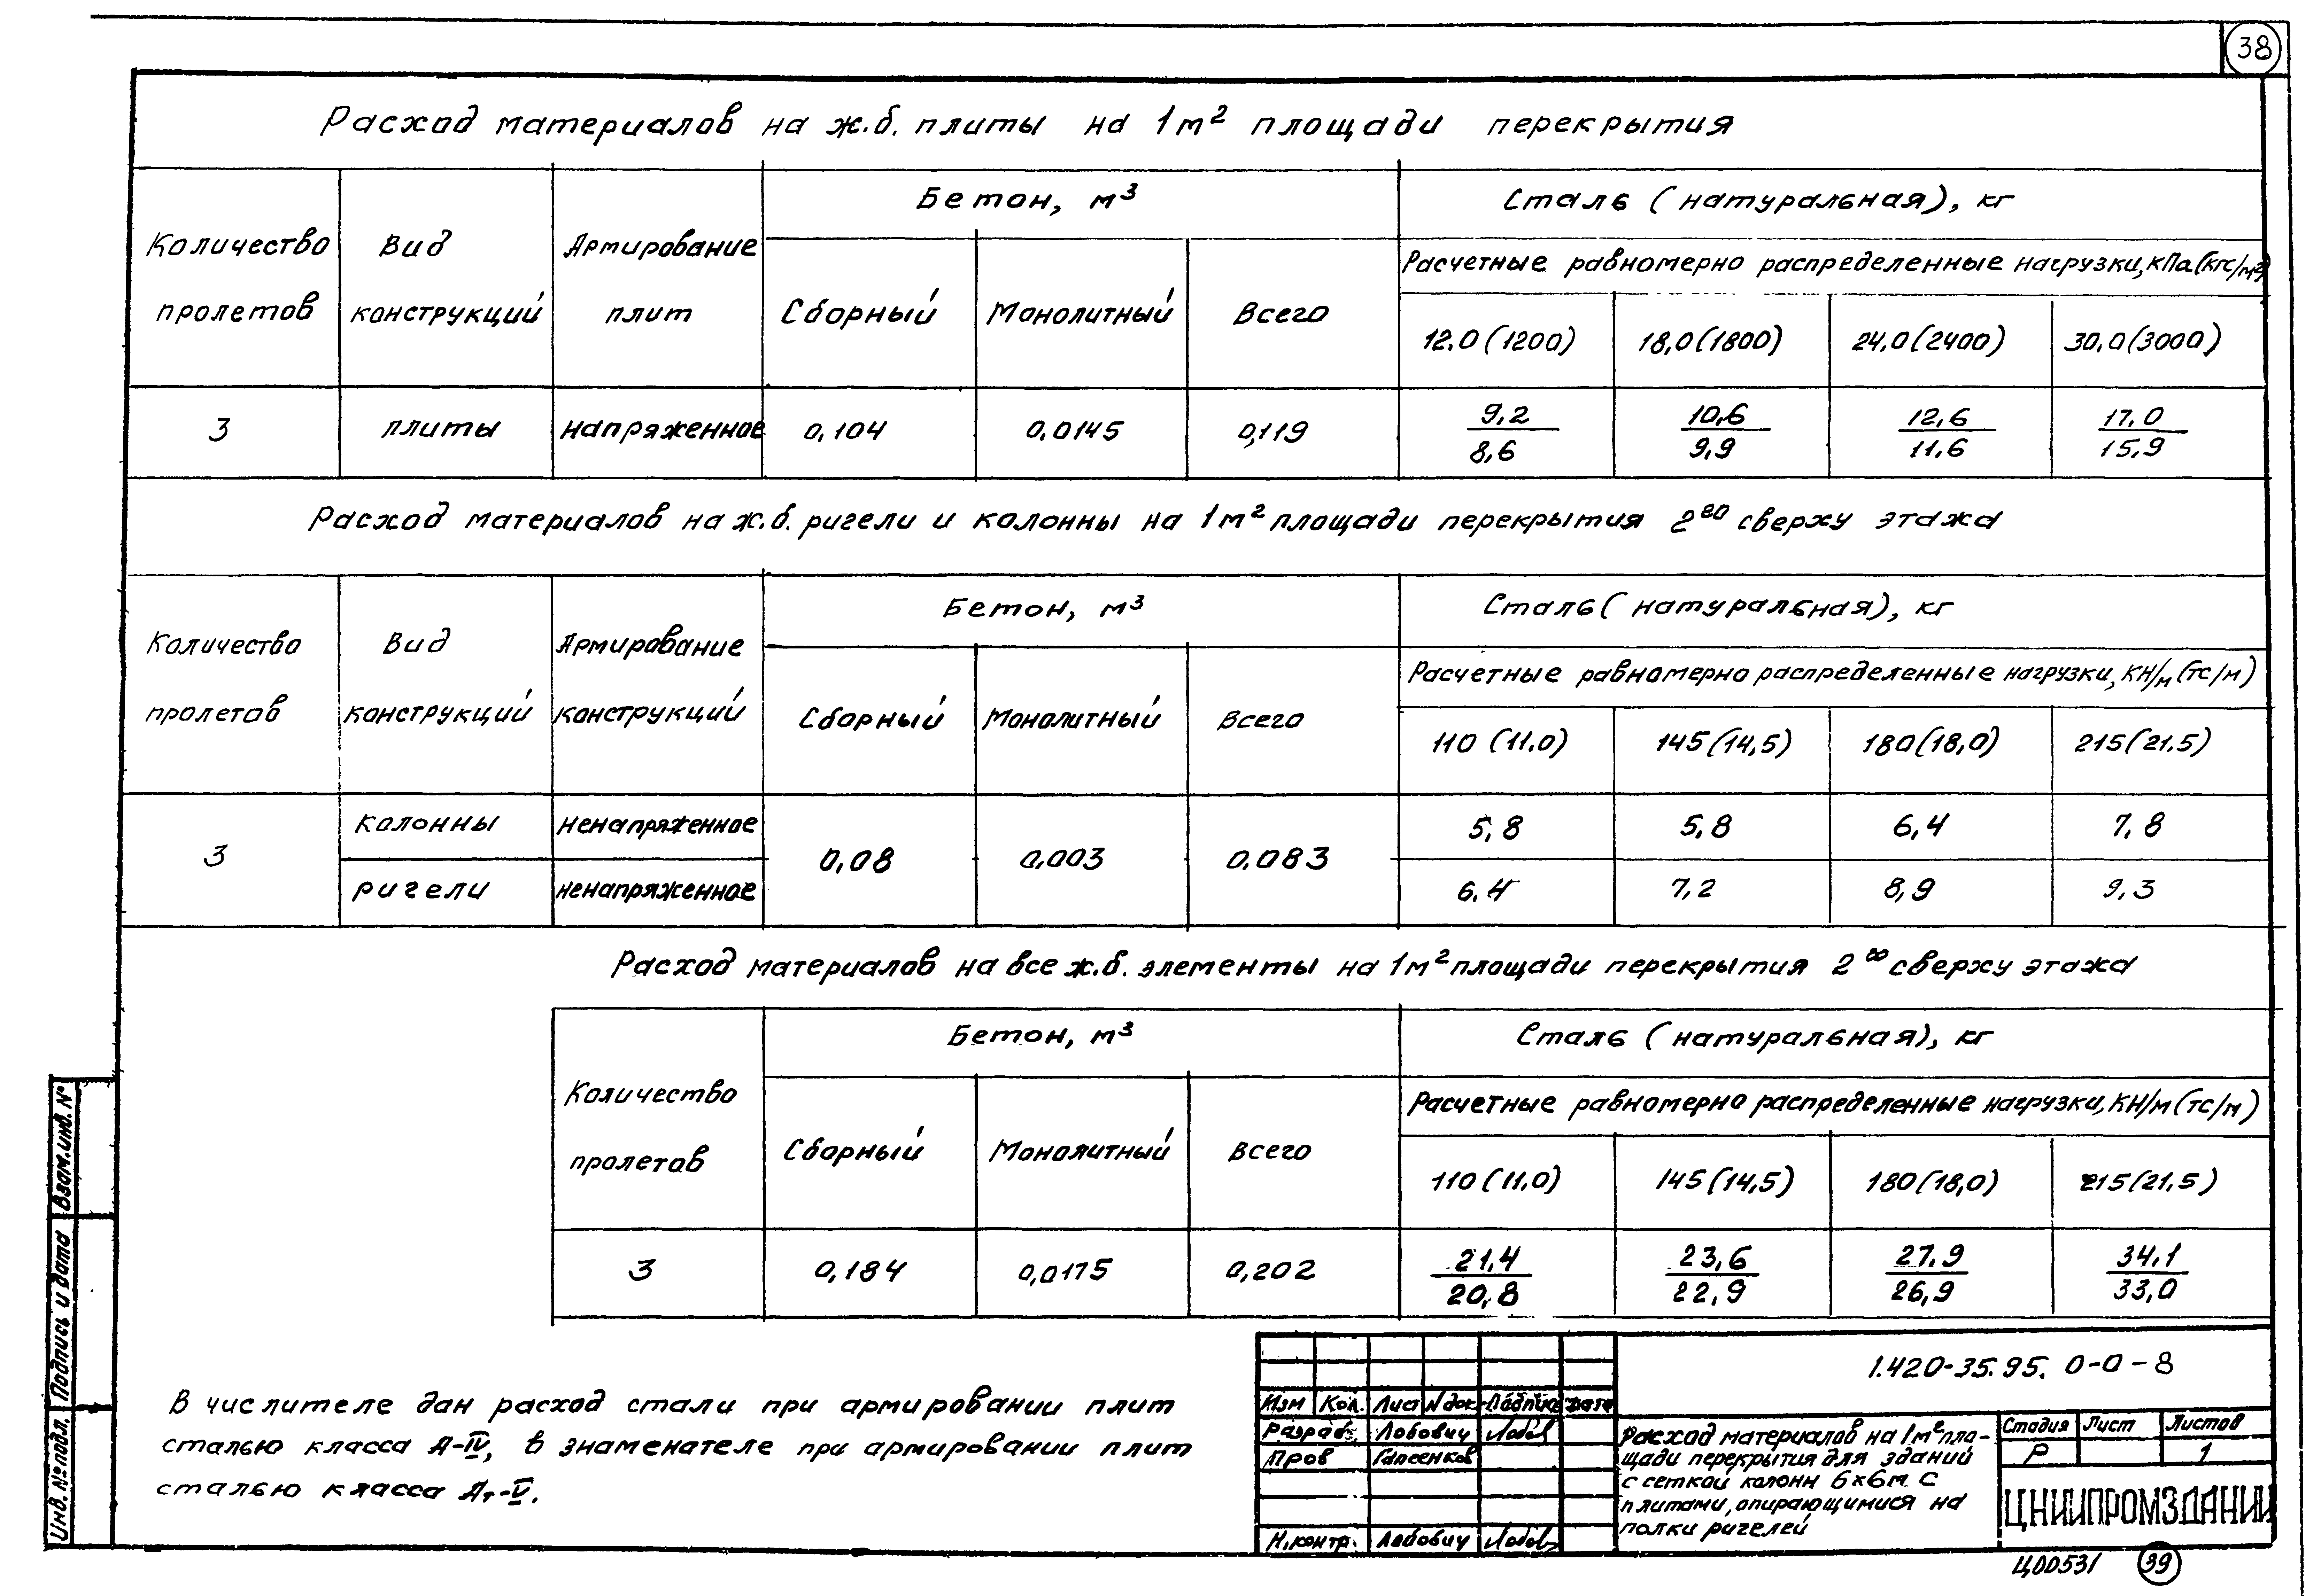 38
Расход материалов на ж.б. плиты на 1м² площади перекрытия
Количество пролетов
Вид конструкций
Армирование плит
Бетон, м³
Сталь (натуральная), кг
Расчетные равномерно распределенные нагрузки, кПа (кгс/м²)
Сборный Монолитный Всего
12.0 (1200) 18,0 (1800) 24,0 (2400) 30,0 (3000)
3 плиты напряженное 0,104 0,0145 0,119 9,2/8,6 10,6/9,9 12,6/11,6 17,0/15,9
Расход материалов на ж.б. ригели и колонны на 1м² площади перекрытия 2го сверху этажа
Количество пролетов
Вид конструкций
Армирование конструкций
Бетон, м³
Сталь (натуральная), кг
Расчетные равномерно распределенные нагрузки, КН/м (тс/м)
Сборный Монолитный Всего
110 (11.0) 145 (14,5) 180 (18,0) 215 (21.5)
3 колонны ненапряженное 0,08 0,003 0,083 5,8 5,8 6,4 7,8
ригели ненапряженное 6.4 7,2 8,9 9,3
Расход материалов на все ж.б. элементы на 1м² площади перекрытия 2го сверху этажа
Количество пролетов
Бетон, м³
Сталь (натуральная), кг
Расчетные равномерно распределенные нагрузки, КН/м (тс/м)
Сборный Монолитный Всего
110 (11.0) 145 (14,5) 180 (18,0) 215 (21,5)
3 0,184 0,0175 0,202 21,4/20,8 23,6/22,9 27.9/26,9 34,1/33,0
В числителе дан расход стали при армировании плит
сталью класса А-IV, в знаменателе при армировании плит
сталью класса Ат-V.
Взам.инв.N°
Подпись и дата
Инв.№подл.
1.420-35.95. 0-0-8
Изм Кол. Лист N док. Подпись Дата
Разраб. Лобович
Пров
Н.контр. Лобович
Расход материалов на 1м² пло-
щади перекрытия для зданий
с сеткой колонн 6×6м с
плитами, опирающимися на
полки ригелей
Стадия Лист Листов
Р 1
ЦНИИПРОМЗДАНИЙ
Ц00531 39